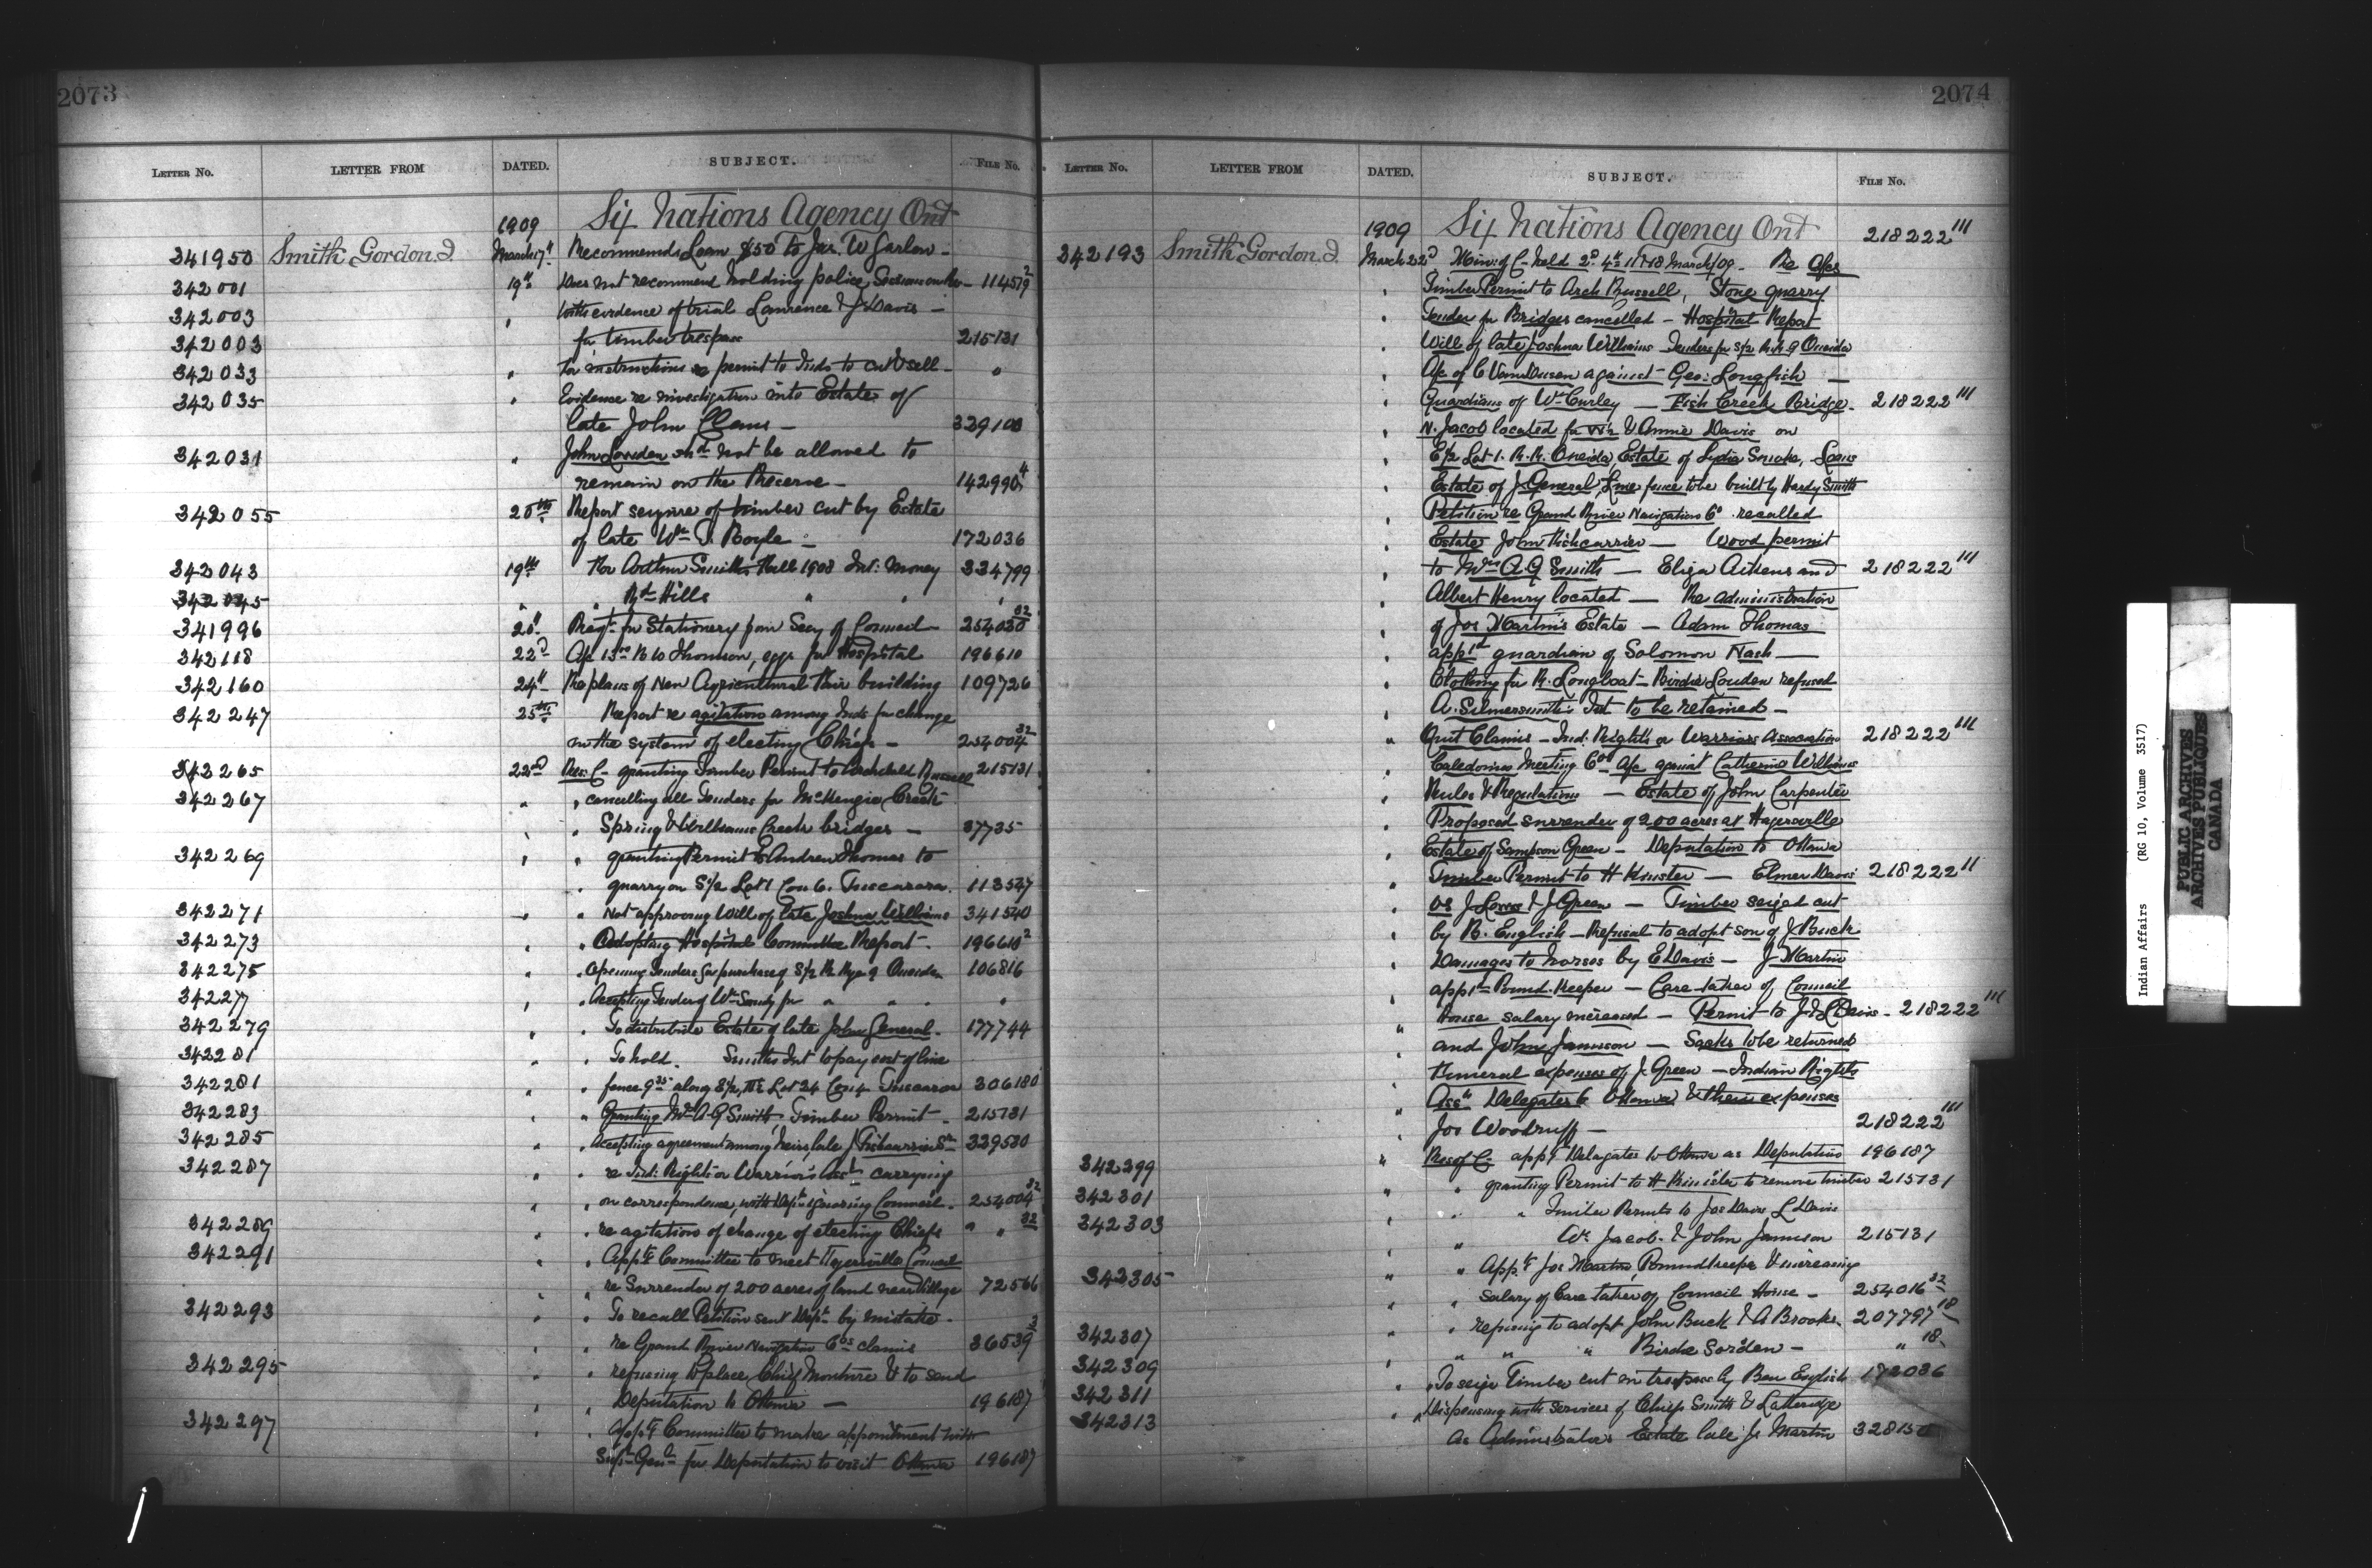 2073
LETTER No. LETTER FROM DATED. SUBJECT. FILE No.
1909 Six Nations Agency Ont
341950 Smith Gordon J. March 17th Recommends Loan $50 to Jas. W Garlow -
342001 19th Does not recommend holding police 11457/9 2
342003 With evidence of trial Lawrence & J Davis -
342003 for timber trespass 215131
342033 For instructions re permit to Inds to cut & sell - "
342035 Evidence re investigation into Estate of
late John Claus - 329108
342031 John Louden shd not be allowed to
remain on the Reserve - 142990 4
342055 20th Report seizure of timber cut by Estate
of late Wm J. Boyle - 172036
342043 19th For Arthur Smiths Fall 1908 Int: Money 334799
342045 " " Rd Hills " " "
341996 20th Reqn for Stationery from Secy of Council 254030 32
342118 22d Ac 13.00 R W Thomson, eggs for Hospital 196610
342160 24th Re plans of New Agricultural Fair building 109726
342247 25th Report re agitation among Inds for change
in the system of electing Chiefs - 254004 32
342265 22nd Res: C - granting Timber Permit to Archibald Russell 215131
342267 " " cancelling all Tenders for McKenzie Creek
Spring & Williams Creek bridges - 37735
342269 " " granting Permit to Andrew Thomas to
quarry on S 1/2 Lot 1 Con 6. Tuscarora. 113547
342271 " " Not approving Will of late Joshua Williams 341540
342273 " " Adopting Hospital Committee Report - 196610 2
342275 " " Opening Tenders for purchase of S/2 R. Rge 9 Oneida 106816
342277 " " Accepting Tender of Wm Sandy for " " " "
342279 " " To distribute Estate of late John General - 177744
342281 " " To hold. Smiths Int to pay cost of line
342281 " " fence 9.35 along S 1/2, Lot 24 Con 4 Tuscarora 306180
342283 " " Granting Mrs A G Smith, Timber Permit - 215131
342285 " " Accepting agreement among heirs, late J Fishcarrier 339530
342287 " " re Ind: Rights or Warriors Assn carrying
" " on correspondence, with Dept ignoring Council. 254004 32
342289 " " re agitation of change of electing Chiefs " " 32
342291 " " Apptg Committee to meet Hagersville Council
" " re Surrender of 200 acres of land near Village 72566
342293 " " To recall Petition sent Dept by mistake -
" " re Grand River Navigation Cos claims 36539 2
342295 " " refusing to place Chief Monture & to send
" " Deputation to Ottawa - 196187
342297 " " Apptg Committee to make appointment with
Supt Genl for Deputation to visit Ottawa 196187
2074
LETTER No. LETTER FROM DATED. SUBJECT. FILE No.
1909 Six Nations Agency Ont 218222 111
342193 Smith Gordon J. March 22d Min: of C - held 2d 4th 11 17 18 March/09 - Re Ofcs
Timber Permit to Arch Russell, Stone quarry
Tender for Bridges cancelled - Hospital Report
Will of late Joshua Williams Tenders for S/2 R. R. 9 Oneida
Ac of C VanDusen against Geo: Longfish -
Guardians of Wm Curley - Fish Creek Bridge - 218222 111
N. Jacob located for Wm & Annie Davis on
E/2 Lot 1. R. R. Oneida, Estate of Lydia Smoke, Loans
Estate of J. General, Line fence to be built by Hardy Smith
Petition re Grand River Navigation Co. recalled
Estate John Fishcarrier - Wood permit
to Mrs A G Smith - Eliza Aikens and 218222 111
Albert Henry located - Re administration
of Jos Martin's Estate - Adam Thomas
apptd guardian of Solomon Nash -
Clothing for R. Longboat - Birdie Louden refused
A. Silversmith's Int to be retained -
Quit Claims - Ind: Rights or Warriors Association 218222 111
Caledonia Meeting Ac against Catherine Williams
Rules & Regulations - Estate of John Carpenter
Proposed surrender of 200 acres at Hagersville
Estate of Sampson Green - Deputation to Ottawa
Timber Permit to H Kinister - Elmer Davis 218222 11
vs J & J Green - Timber seized cut
by B. English - Refusal to adopt son of J. Buck
Damages to horses by E Davis - J Martin
apptd Pound-Keeper - Care-taker of Council
House salary increased - Permit to J. & L Davis - 218222 111
and John Jamieson - Sacks to be returned
Funeral expenses of J. Green - Indian Rights
Assn Delegates to Ottawa & their expenses
Jos Woodruff - 218222 111
342299 Res of C - apptg Delegates to Ottawa as Deputation 196187
342301 " granting Permit to H Kinister to remove timber 215131
342303 " " Timber Permits to Jos Davis L Davis
Wm Jacob. & John Jamieson 215131
342305 " " Apptg Jos Martin, Poundkeeper & increasing
" " salary of Care taker of Council House - 254016 32
342307 " " refusing to adopt John Buck & A Brooks - 207797 18
342309 " " " Birdie Sorden - " 18
342311 " To seize Timber cut in trespass by Ben English 172036
342313 " Dispensing with services of Chiefs Smith & Latteridge
As Administrators Estate late Js Martin 328150
Indian Affairs (RG 10, Volume 3517)
PUBLIC ARCHIVES
ARCHIVES PUBLIQUES
CANADA